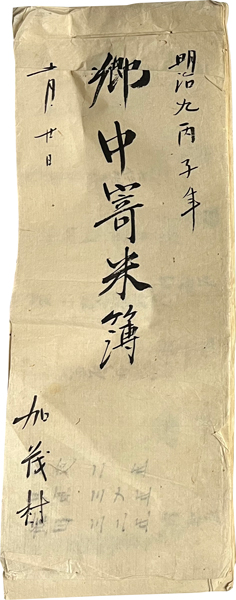 明治九丙子年
郷中寄米簿
十月廿日
加茂村